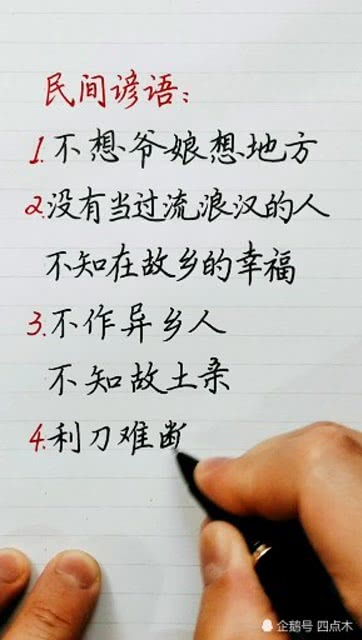 民间谚语：
1.不想爷娘想地方
2.没有当过流浪汉的人
不知在故乡的幸福
3.不作异乡人
不知故土亲
4.利刀难断
企鹅号 四点木